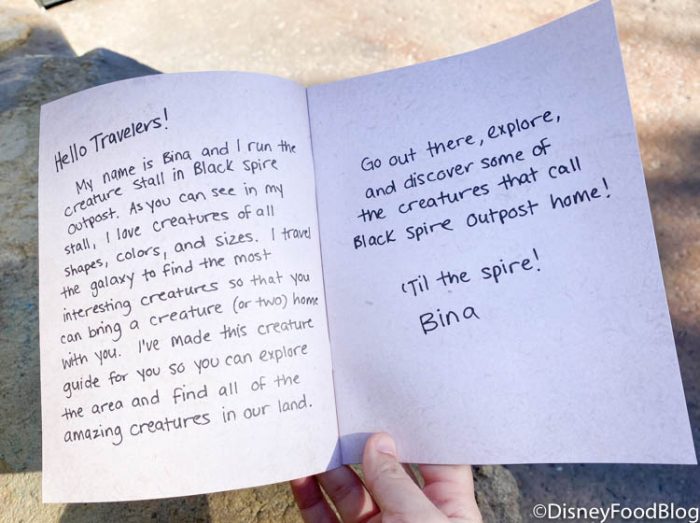 Hello Travelers!
My name is Bina and I run the
creature stall in Black spire
outpost. As you can see in my
stall, I love creatures of all
shapes, colors, and sizes. I travel
the galaxy to find the most
interesting creatures so that you
can bring a creature (or two) home
with you. I've made this creature
guide for you so you can explore
the area and find all of the
amazing creatures in our land.
Go out there, explore,
and discover some of
the creatures that call
Black spire outpost home!
'Til the spire!
Bina
©DisneyFoodBlog